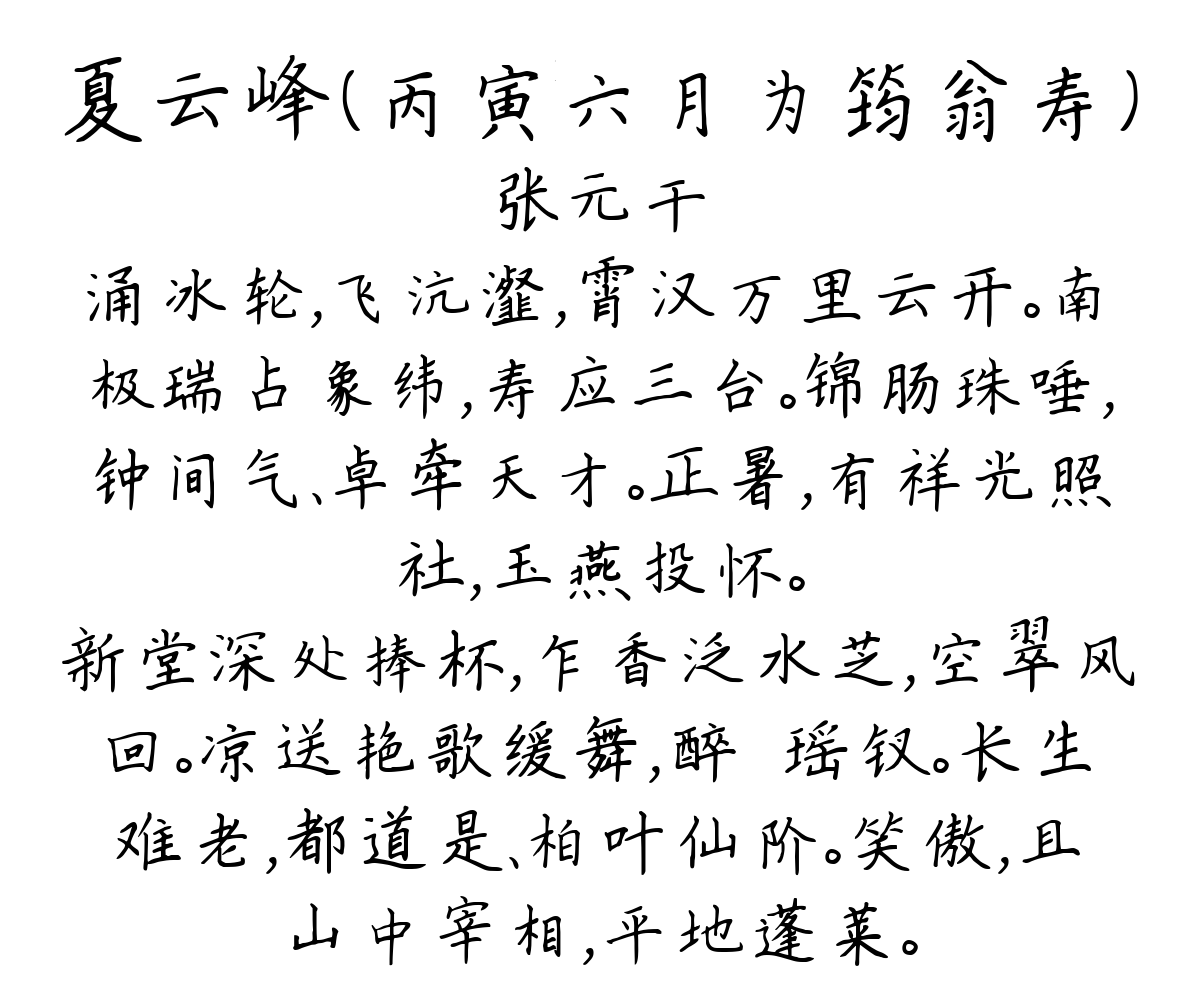 夏云峰(丙寅六月为筠翁寿)
张元干
涌冰轮,飞沆瀣,霄汉万里云开。南
极瑞占象纬,寿应三台。锦肠珠唾,
钟间气、卓荦天才。正暑,有祥光照
社,玉燕投怀。
新堂深处捧杯,乍香泛水芝,空翠风
回。凉送艳歌缓舞,醉 瑶钗。长生
难老,都道是、柏叶仙阶。笑傲,且
山中宰相,平地蓬莱。